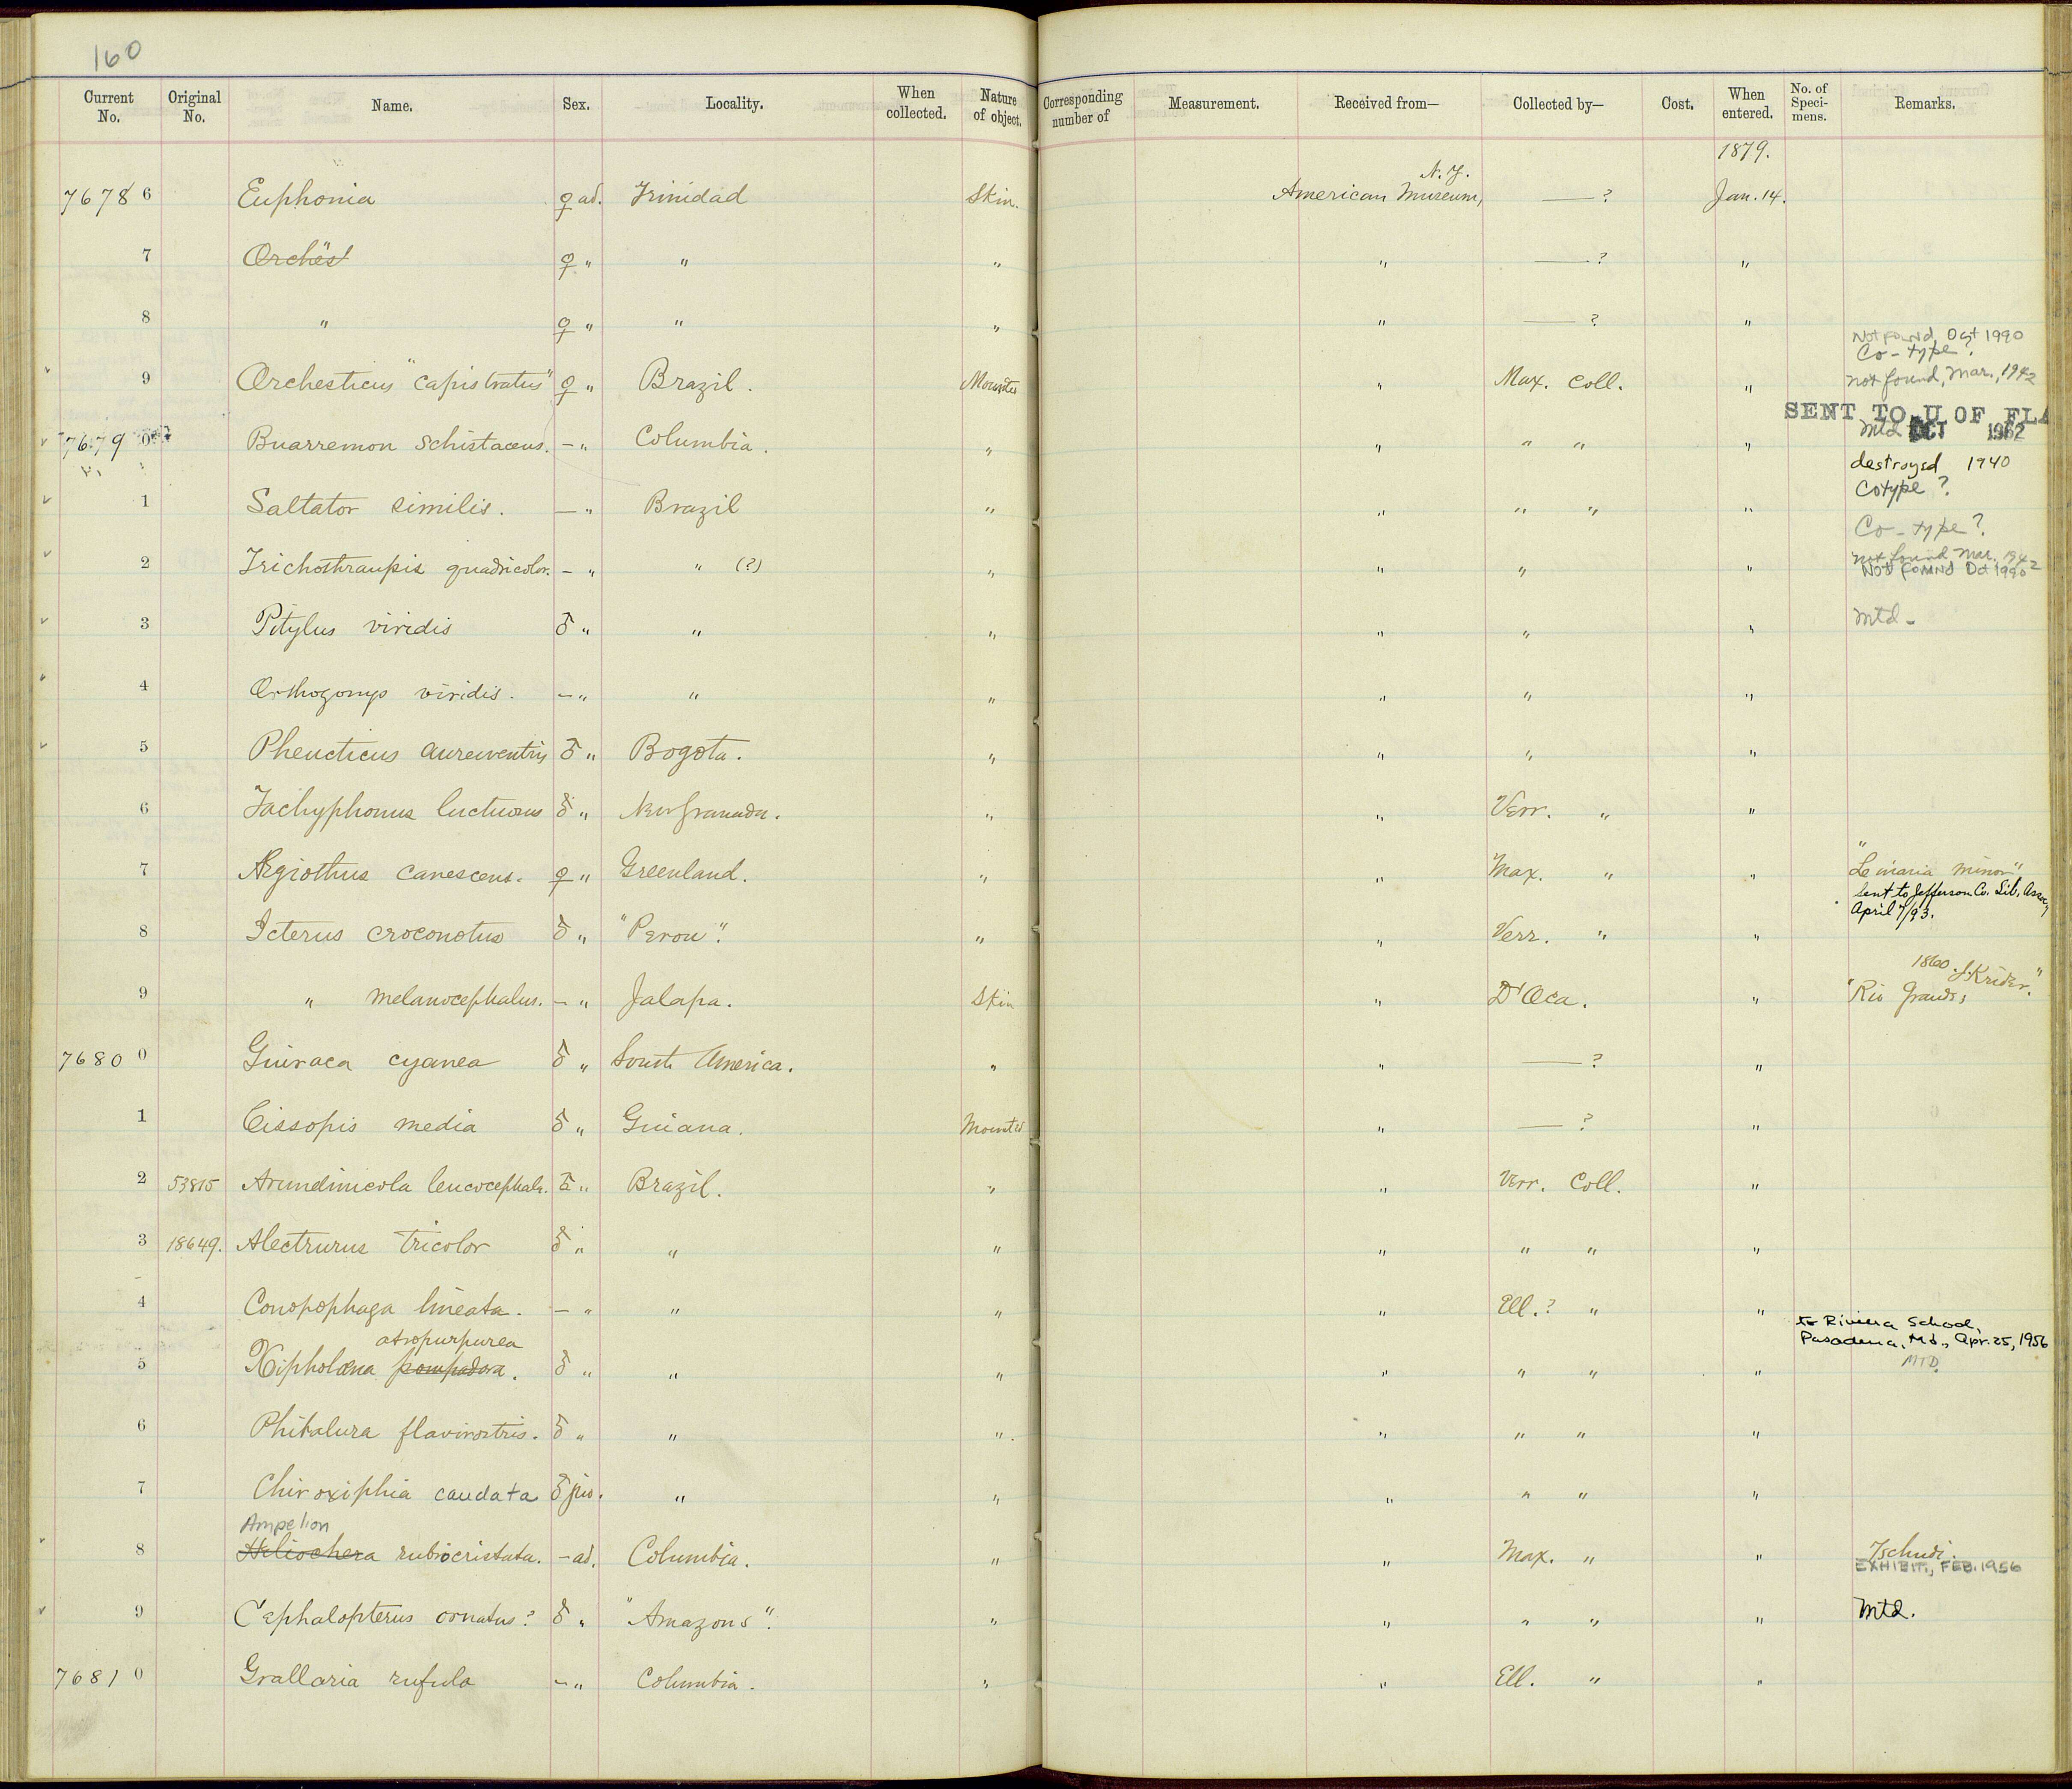 160
Current No. Original No. Name. Sex. Locality. When collected. Nature of object. Corresponding number of Measurement. Received from— Collected by— Cost. When entered. No. of Specimens. Remarks.
1879.
7678 6 Euphonia ♀ ad. Trinidad Skin. American Museum, N.Y. —? Jan. 14.
7 ♀ " " " " —? "
8 " ♀ " " " " —? "
Not found Oct 1990
Co-type?
9 Orchesticus "capistratus" ♀ " Brazil. Mounted " Max. Coll. " not found, Mar., 1942
SENT TO U OF FLA
7679 0 Buarremon schistaceus. – " Columbia. " " " " " Mtd OCT 1962
destroyed 1940
Cotype?
1 Saltator similis. – " Brazil " " " " "
Co-type?
2 Trichothraupis quadricolor. – " " (?) " " " " not found Mar. 1942
Not found Oct 1990
3 Pitylus viridis ♂ " " " " " " Mtd –
4 Orthogonys viridis. – " " " " " "
5 Pheucticus aureiventris ♂ " Bogota. " " " "
6 Tachyphonus luctuosus ♂ " New Granada. " " Verr. " "
7 Ægiothus canescens. ♀ " Greenland. " " Max. " " "Linaria minor".
Sent to Jefferson Co. Lib. Assoc,
April 7/93.
8 Icterus croconotus ♂ " "Perou". " " Verr. " "
1860 J. Krider."
9 " melanocephalus. – " Jalapa. Skin " D'Oca. " "Rio Grande,
7680 0 Guiraca cyanea ♂ " South America. " " —? "
1 Cissopis media ♂ " Guiana. Mounted " —? "
2 53815 Arundinicola leucocephala. ♂ " Brazil. " " Verr. Coll. "
3 18649. Alectrurus tricolor ♂ " " " " " " "
4 Conopophaga lineata. – " " " " Ell.? " "
to Riviera School,
Pasadena, Md., Apr. 25, 1956
atropurpurea
5 Xipholena pompadora. ♂ " " " " " " " MTD.
6 Phibalura flavirostris. ♂ " " " " " " "
7 Chiroxiphia caudata ♂ juv. " " " " " "
Ampelion
8 Heliochera rubrocristata. – ad. Columbia. " " Max. " " Tschudi.
EXHIBIT., FEB. 1956
9 Cephalopterus ornatus? ♂ " "Amazons". " " " " " Mtd.
7681 0 Grallaria rufula – " Columbia. " " Ell. " "